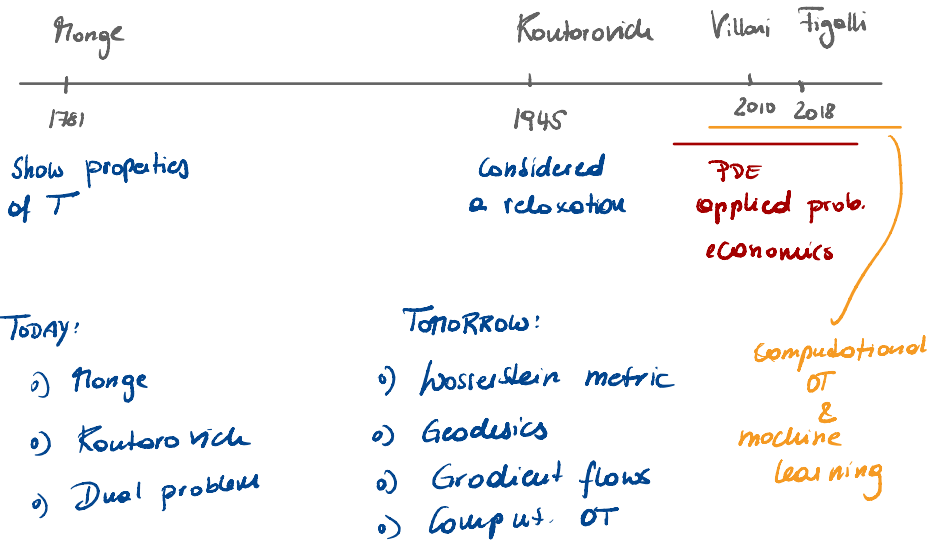 Monge
Kantorovich
Villani
Figalli
1781
1945
2010
2018
Show properties
of T
Considered
a relaxation
PDE
applied prob.
economics
TODAY:
o) Monge
o) Kantorovich
o) Dual problem
TOMORROW:
o) Wasserstein metric
o) Geodesics
o) Gradient flows
o) Comput. OT
Computational
OT
&
machine
learning